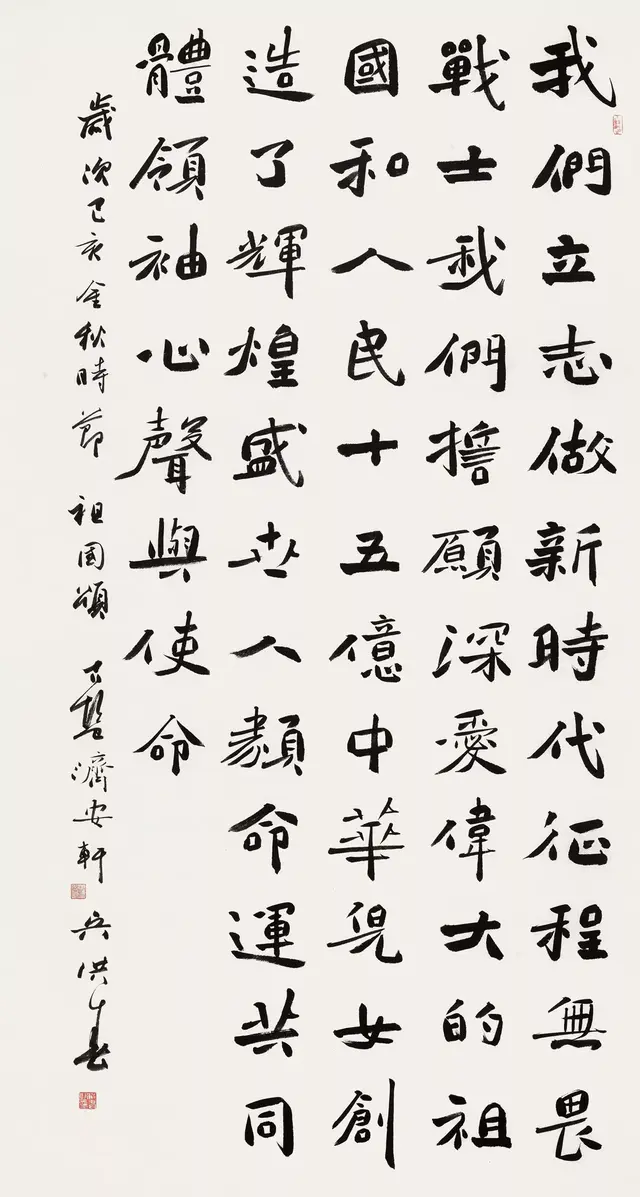 我們立志做新時代征程無畏
戰士我們誓願深愛偉大的祖
國和人民十五億中華兒女創
造了輝煌盛世人類命運共同
體領袖心聲與使命
歲次己亥金秋時節 祖国頌 濟安軒 吴洪春